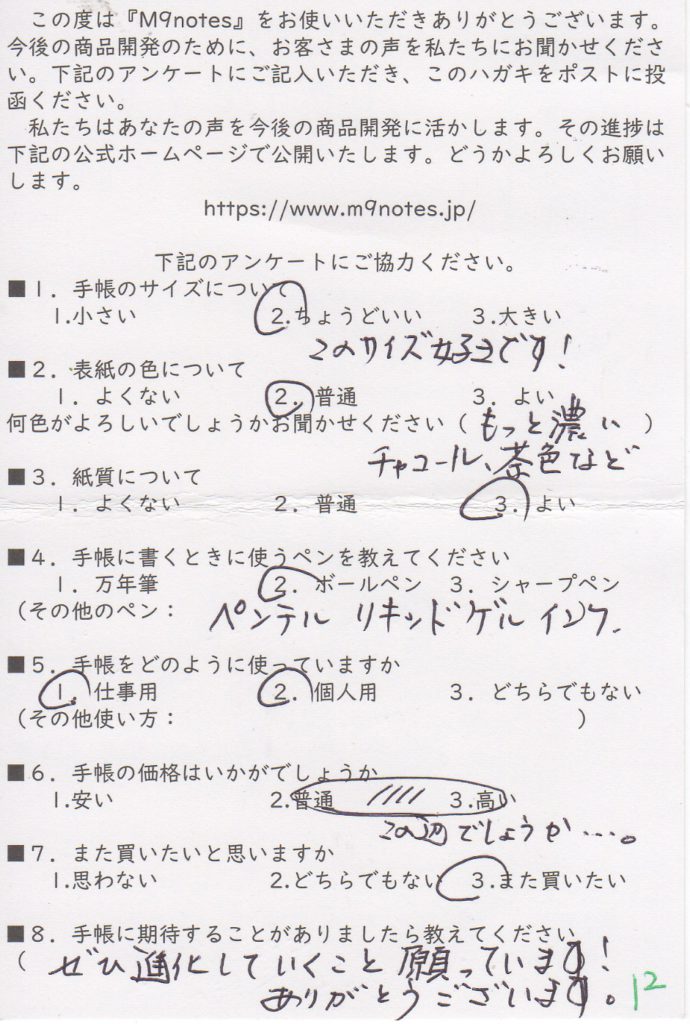 この度は『M9notes』をお使いいただきありがとうございます。
今後の商品開発のために、お客さまの声を私たちにお聞かせくださ
い。下記のアンケートにご記入いただき、このハガキをポストに投
函ください。
私たちはあなたの声を今後の商品開発に活かします。その進捗は
下記の公式ホームページで公開いたします。どうかよろしくお願い
します。
https://www.m9notes.jp/
下記のアンケートにご協力ください。
■1．手帳のサイズについて
1.小さい 2.ちょうどいい 3.大きい
このサイズ好きです！
■2．表紙の色について
1．よくない 2．普通 3．よい
何色がよろしいでしょうかお聞かせください（もっと濃い）
チャコール、茶色など
■3．紙質について
1．よくない 2．普通 3．よい
■4．手帳に書くときに使うペンを教えてください
1．万年筆 2．ボールペン 3．シャープペン
（その他のペン： ペンテル リキッドゲルインク.
■5．手帳をどのように使っていますか
1．仕事用 2．個人用 3．どちらでもない
（その他使い方： ）
■6．手帳の価格はいかがでしょうか
1.安い 2.普通 //// 3.高い
この辺でしょうか…。
■7．また買いたいと思いますか
1.思わない 2.どちらでもない 3.また買いたい
■8．手帳に期待することがありましたら教えてください
（ ぜひ進化していくこと願っています！
ありがとうございます。 12